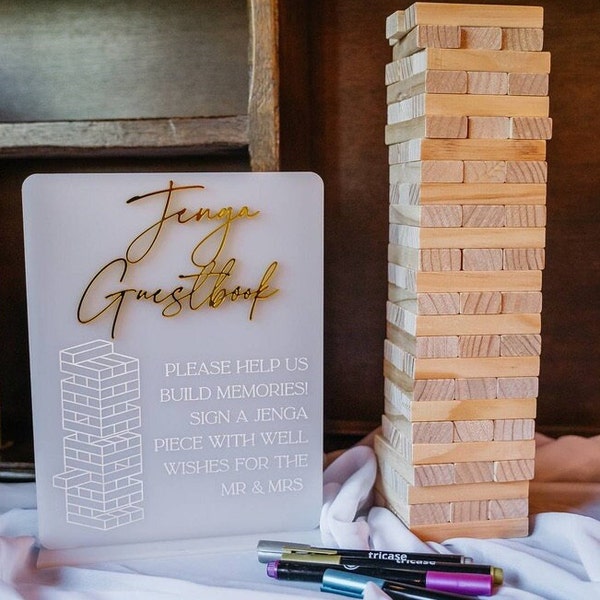 Jenga
Guestbook
PLEASE HELP US
BUILD MEMORIES!
SIGN A JENGA
PIECE WITH WELL
WISHES FOR THE
MR & MRS
tricase
tricase